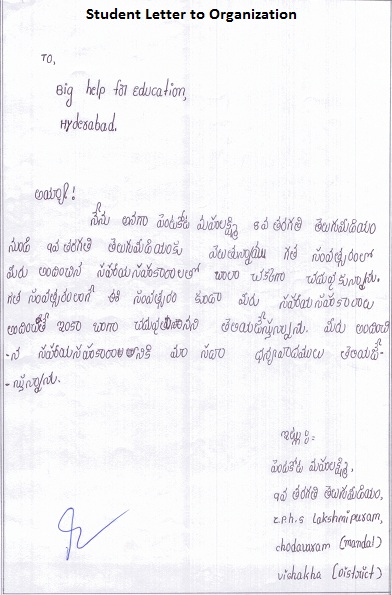 Student Letter to Organization
TO,
Big help for education,
Hyderabad.
అయ్యా !
నేను అనగా పెంటకోట మహాలక్ష్మి 8వ తరగతి తెలుగుమీడియం
నుండి 9వ తరగతి తెలుగుమీడియంకు వెలుతున్నాను గత సంవత్సరంలో
మీరు అందించిన సహాయసహకారాలతో చాలా చక్కగా చదువుకున్నాను.
గత సంవత్సరంలాగే ఈ సంవత్సరం కూడా మీరు సహాయసహకారాలు
అందిచితే ఇంకా బాగా చదువుతానని తెలియచేస్తున్నాను. మీరు అందించి
-న సహాయసహకారాలకి మా సదా ధన్యవాదములు తెలియచే-
-స్తున్నాను.
ఇట్లు :-
పెంటకోట మహాలక్ష్మి,
9వ తరగతి తెలుగుమీడియం,
Z.P.h.s Lakshmipuram,
chodavaram (mandal)
vishakha (District)